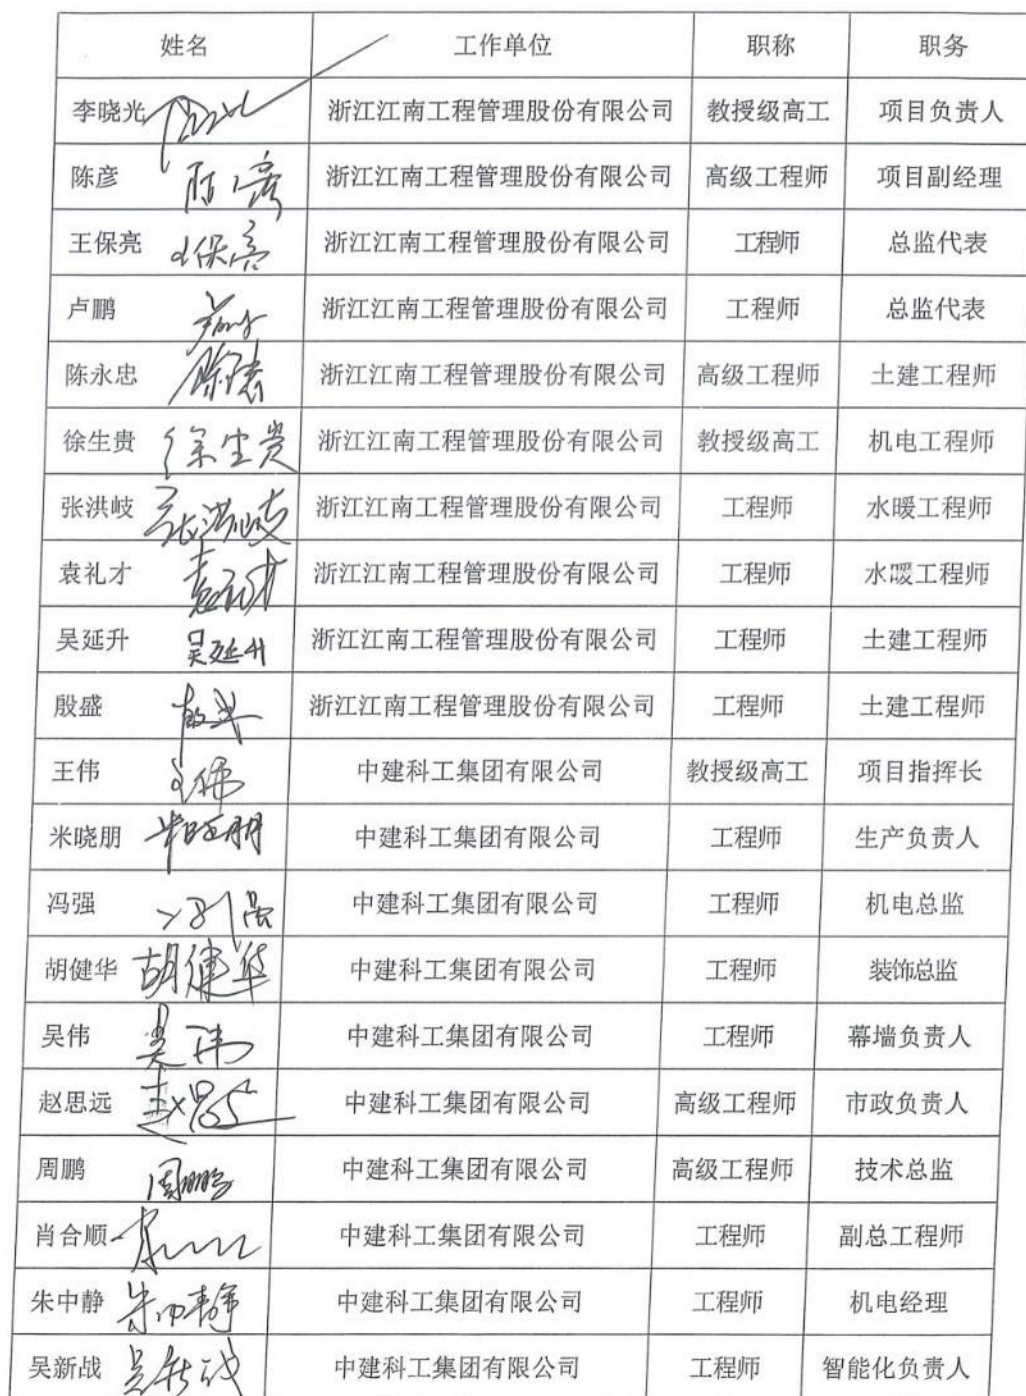 姓名 工作单位 职称 职务
李晓光 浙江江南工程管理股份有限公司 教授级高工 项目负责人
陈彦 陈彦 浙江江南工程管理股份有限公司 高级工程师 项目副经理
王保亮 王保亮 浙江江南工程管理股份有限公司 工程师 总监代表
卢鹏 浙江江南工程管理股份有限公司 工程师 总监代表
陈永忠 浙江江南工程管理股份有限公司 高级工程师 土建工程师
徐生贵 徐生贵 浙江江南工程管理股份有限公司 教授级高工 机电工程师
张洪岐 张洪岐 浙江江南工程管理股份有限公司 工程师 水暖工程师
袁礼才 袁礼才 浙江江南工程管理股份有限公司 工程师 水暖工程师
吴延升 吴延升 浙江江南工程管理股份有限公司 工程师 土建工程师
殷盛 浙江江南工程管理股份有限公司 工程师 土建工程师
王伟 王伟 中建科工集团有限公司 教授级高工 项目指挥长
米晓朋 米晓朋 中建科工集团有限公司 工程师 生产负责人
冯强 冯强 中建科工集团有限公司 工程师 机电总监
胡健华 胡健华 中建科工集团有限公司 工程师 装饰总监
吴伟 吴伟 中建科工集团有限公司 工程师 幕墙负责人
赵思远 赵思远 中建科工集团有限公司 高级工程师 市政负责人
周鹏 周鹏 中建科工集团有限公司 高级工程师 技术总监
肖合顺 中建科工集团有限公司 工程师 副总工程师
朱中静 朱中静 中建科工集团有限公司 工程师 机电经理
吴新战 吴新战 中建科工集团有限公司 工程师 智能化负责人